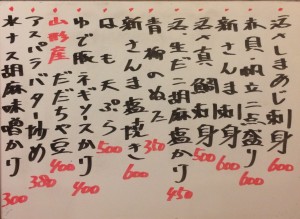 活きしまあじ刺身 600
赤貝・帆立二点盛り 600
新さんま刺身 600
活き真鯛刺身 500
活生だこ胡麻塩かけ 450
青柳のぬた 350
新さんま塩焼き 600
はも天ぷら 500
ゆで豚ネギソースかけ 400
山形産だだちゃ豆 400
アスパラバター炒め 380
水ナス胡麻味噌かけ 300